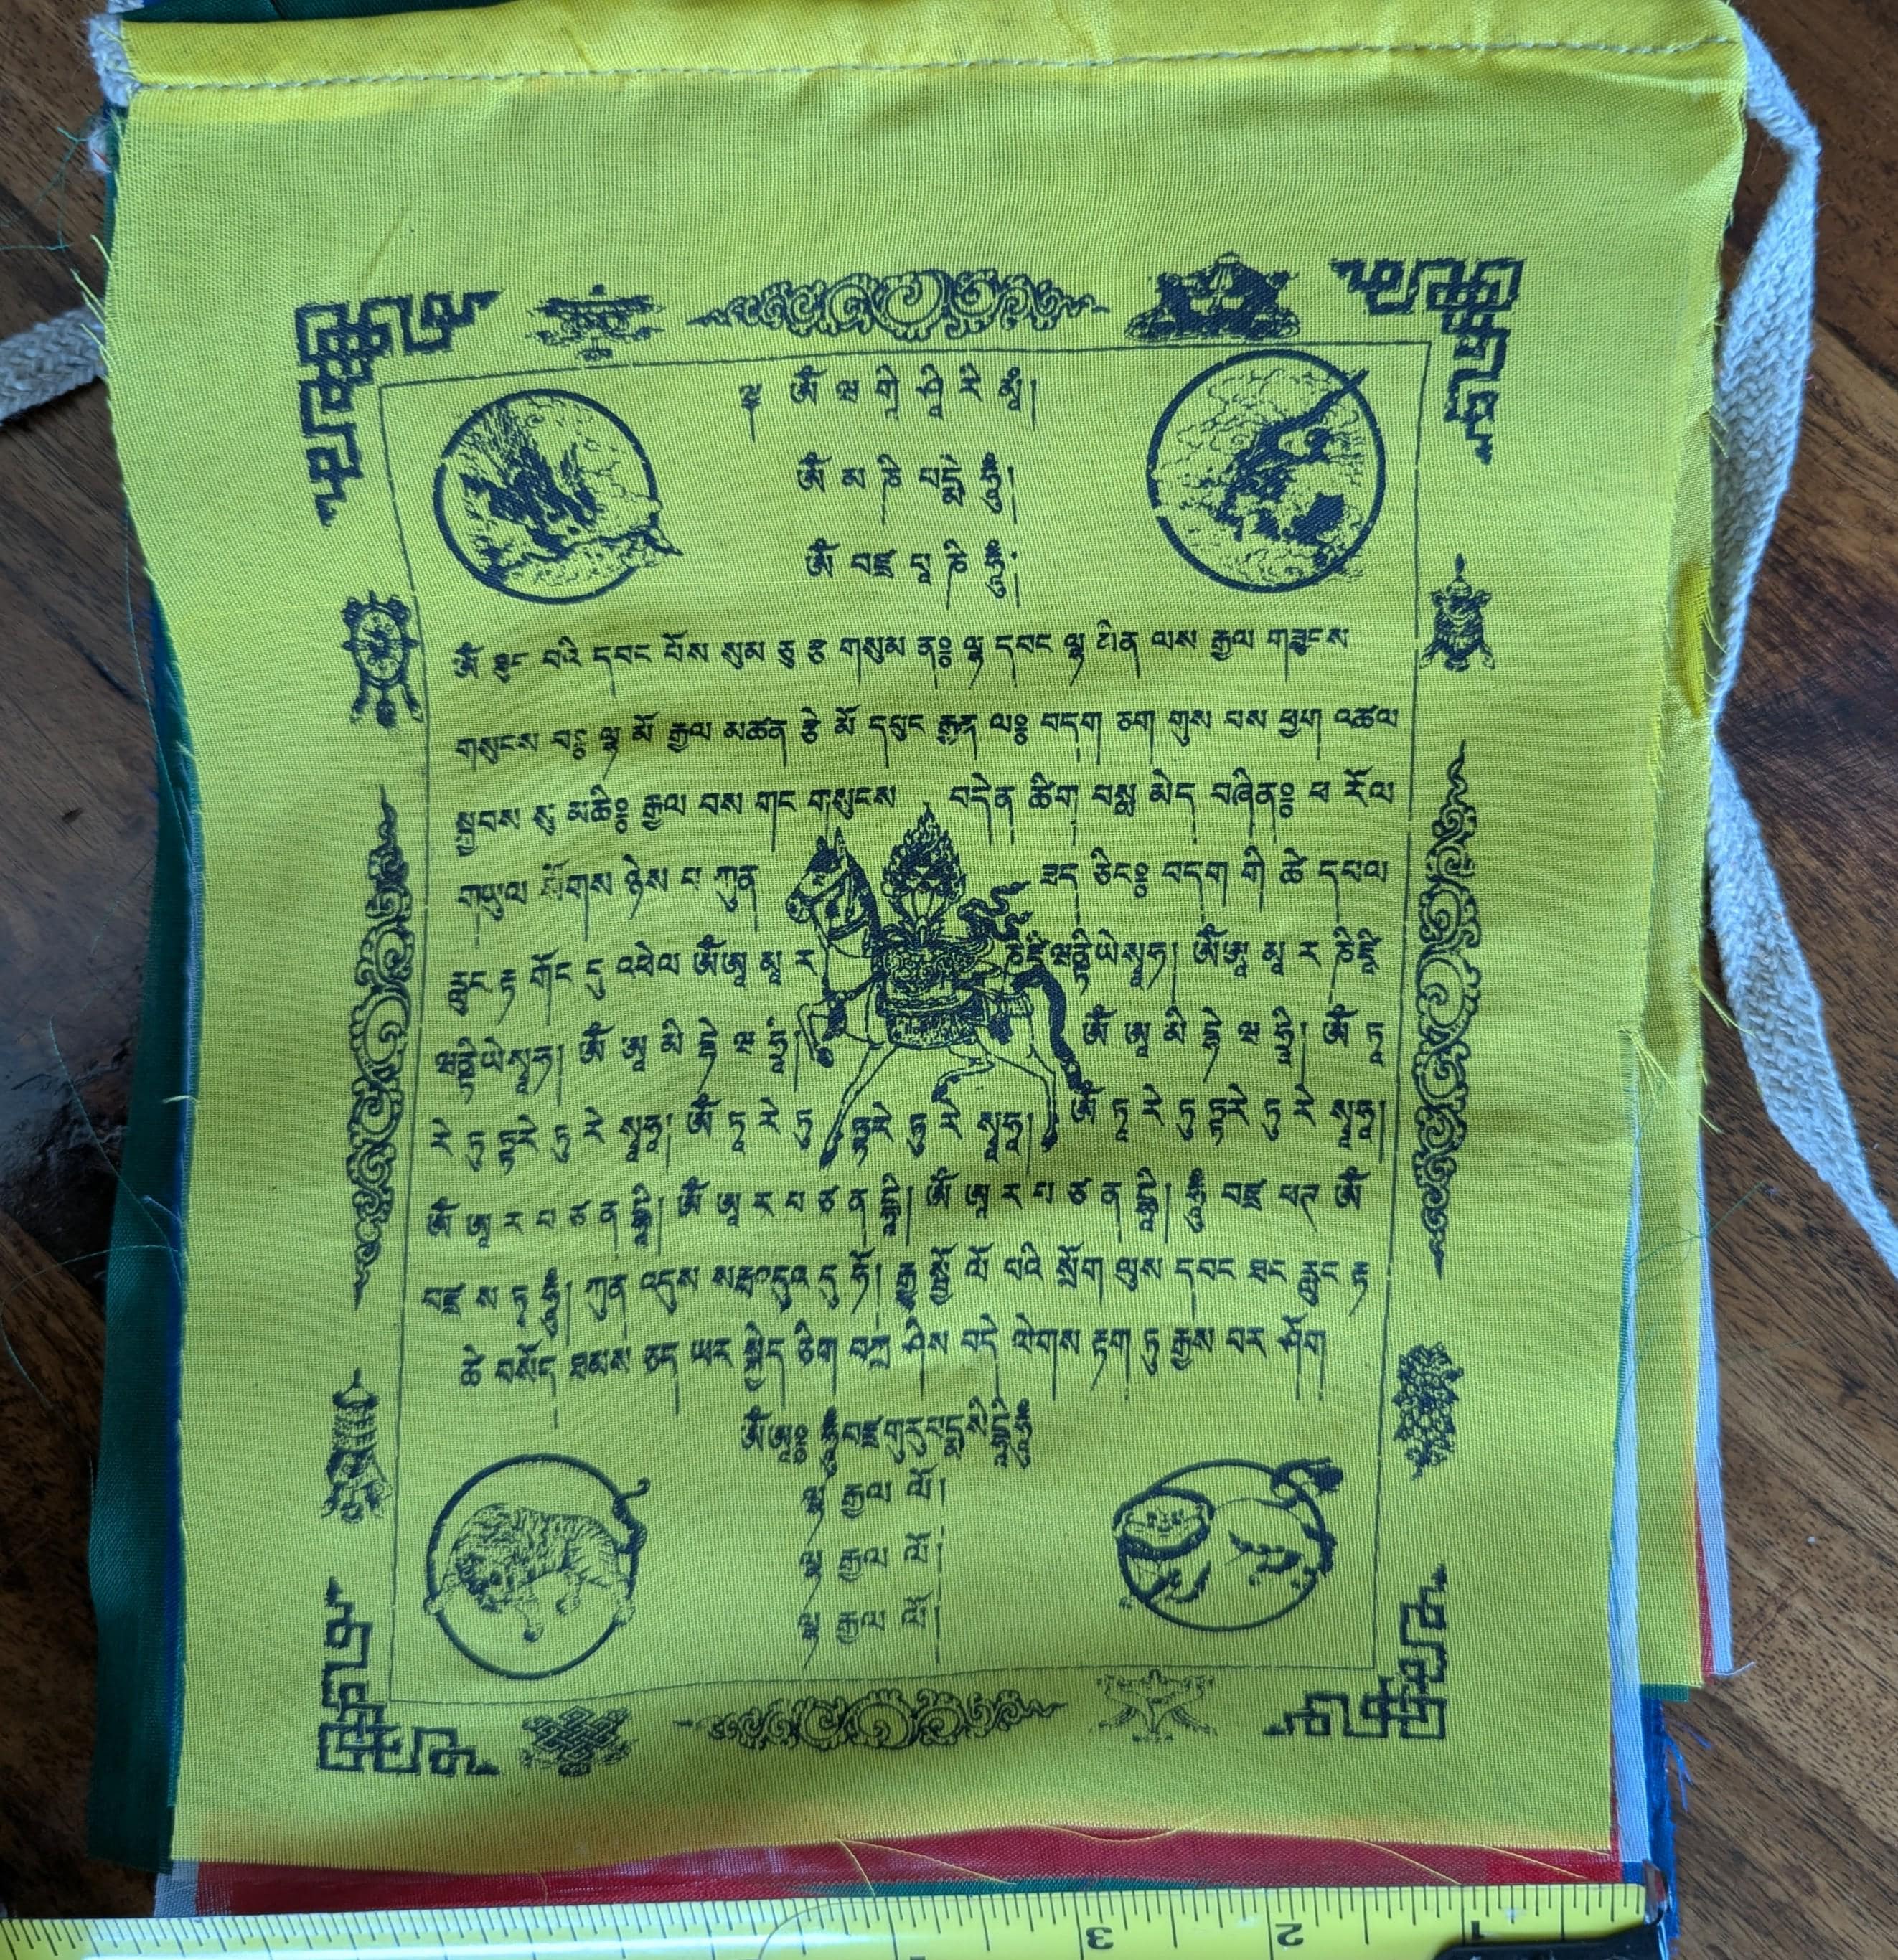 ཨོཾ མ ཎི པདྨེ ཧཱུྃ།
ཨོཾ བཛྲ པཱ ཎི ཧཱུྃ།
དབང པོས སུམ ཅུ རྩ གསུམ ན༔ ལྷ དབང ལྷ ཡིན ལས རྒྱལ
གསུངས པ༔ ལྷ མོ རྒྱལ མཚན རྩེ མོ དཔུང རྒྱན ལ༔ བདག ཅག གུས པས ཕྱག འཚལ
སྐྱབས སུ མཆི༔ རྒྱལ བས གང གསུངས བདེན ཚིག བསླུ མེད བཞིན༔ ཕ རོལ
གཡུལ ཕྱོགས ཉེས པ ཀུན ཟད ཅིང༔ བདག གི ཚེ དཔལ
རླུང རྟ གོང དུ འཕེལ ཨོཾ ཨཱ མཱ ར ཎི ཛཱི ཝནྟི ཡེ སྭཱཧཱ། ཨོཾ ཨཱ མཱ ར ཎི ཛཱི
ཝནྟི ཡེ སྭཱཧཱ། ཨོཾ ཨཱ མི དྷེ ཝ ཧྲཱི། ཨོཾ ཨཱ མི དྷེ ཝ ཧྲཱི། ཨོཾ ཏཱ
རེ ཏུ ཏྟཱརེ ཏུ རེ སྭཱཧཱ། ཨོཾ ཏཱ རེ ཏུ ཏྟཱརེ ཏུ རེ སྭཱཧཱ། ཨོཾ ཏཱ རེ ཏུ ཏྟཱརེ ཏུ རེ སྭཱཧཱ།
ཨོཾ ཨཱ ར པ ཙ ན དྷཱི། ཨོཾ ཨཱ ར པ ཙ ན དྷཱི། ཨོཾ ཨཱ ར པ ཙ ན དྷཱི། ཧཱུྃ བཛྲ ཕཊ ཨོཾ
བཛྲ ས ཏྭ ཧཱུྃ། ཀུན འདུས དུ ཧོ། རྒྱུ སྦྱོར ལོ པའི སྲོག ལུས དབང ཐང རླུང རྟ
ཚེ བསོད ཐམས ཅད ཡར སྐྱེད ཅིག བཀྲ ཤིས བདེ ལེགས རྟག ཏུ རྒྱས པར ཤོག
ཨོཾ ཨཱ༔ ཧཱུྃ བཛྲ གུ རུ པདྨ སིདྡྷི ཧཱུྃ
ལྷ རྒྱལ ལོ།
ལྷ རྒྱལ ལོ།
ལྷ རྒྱལ ལོ།
3
2
1